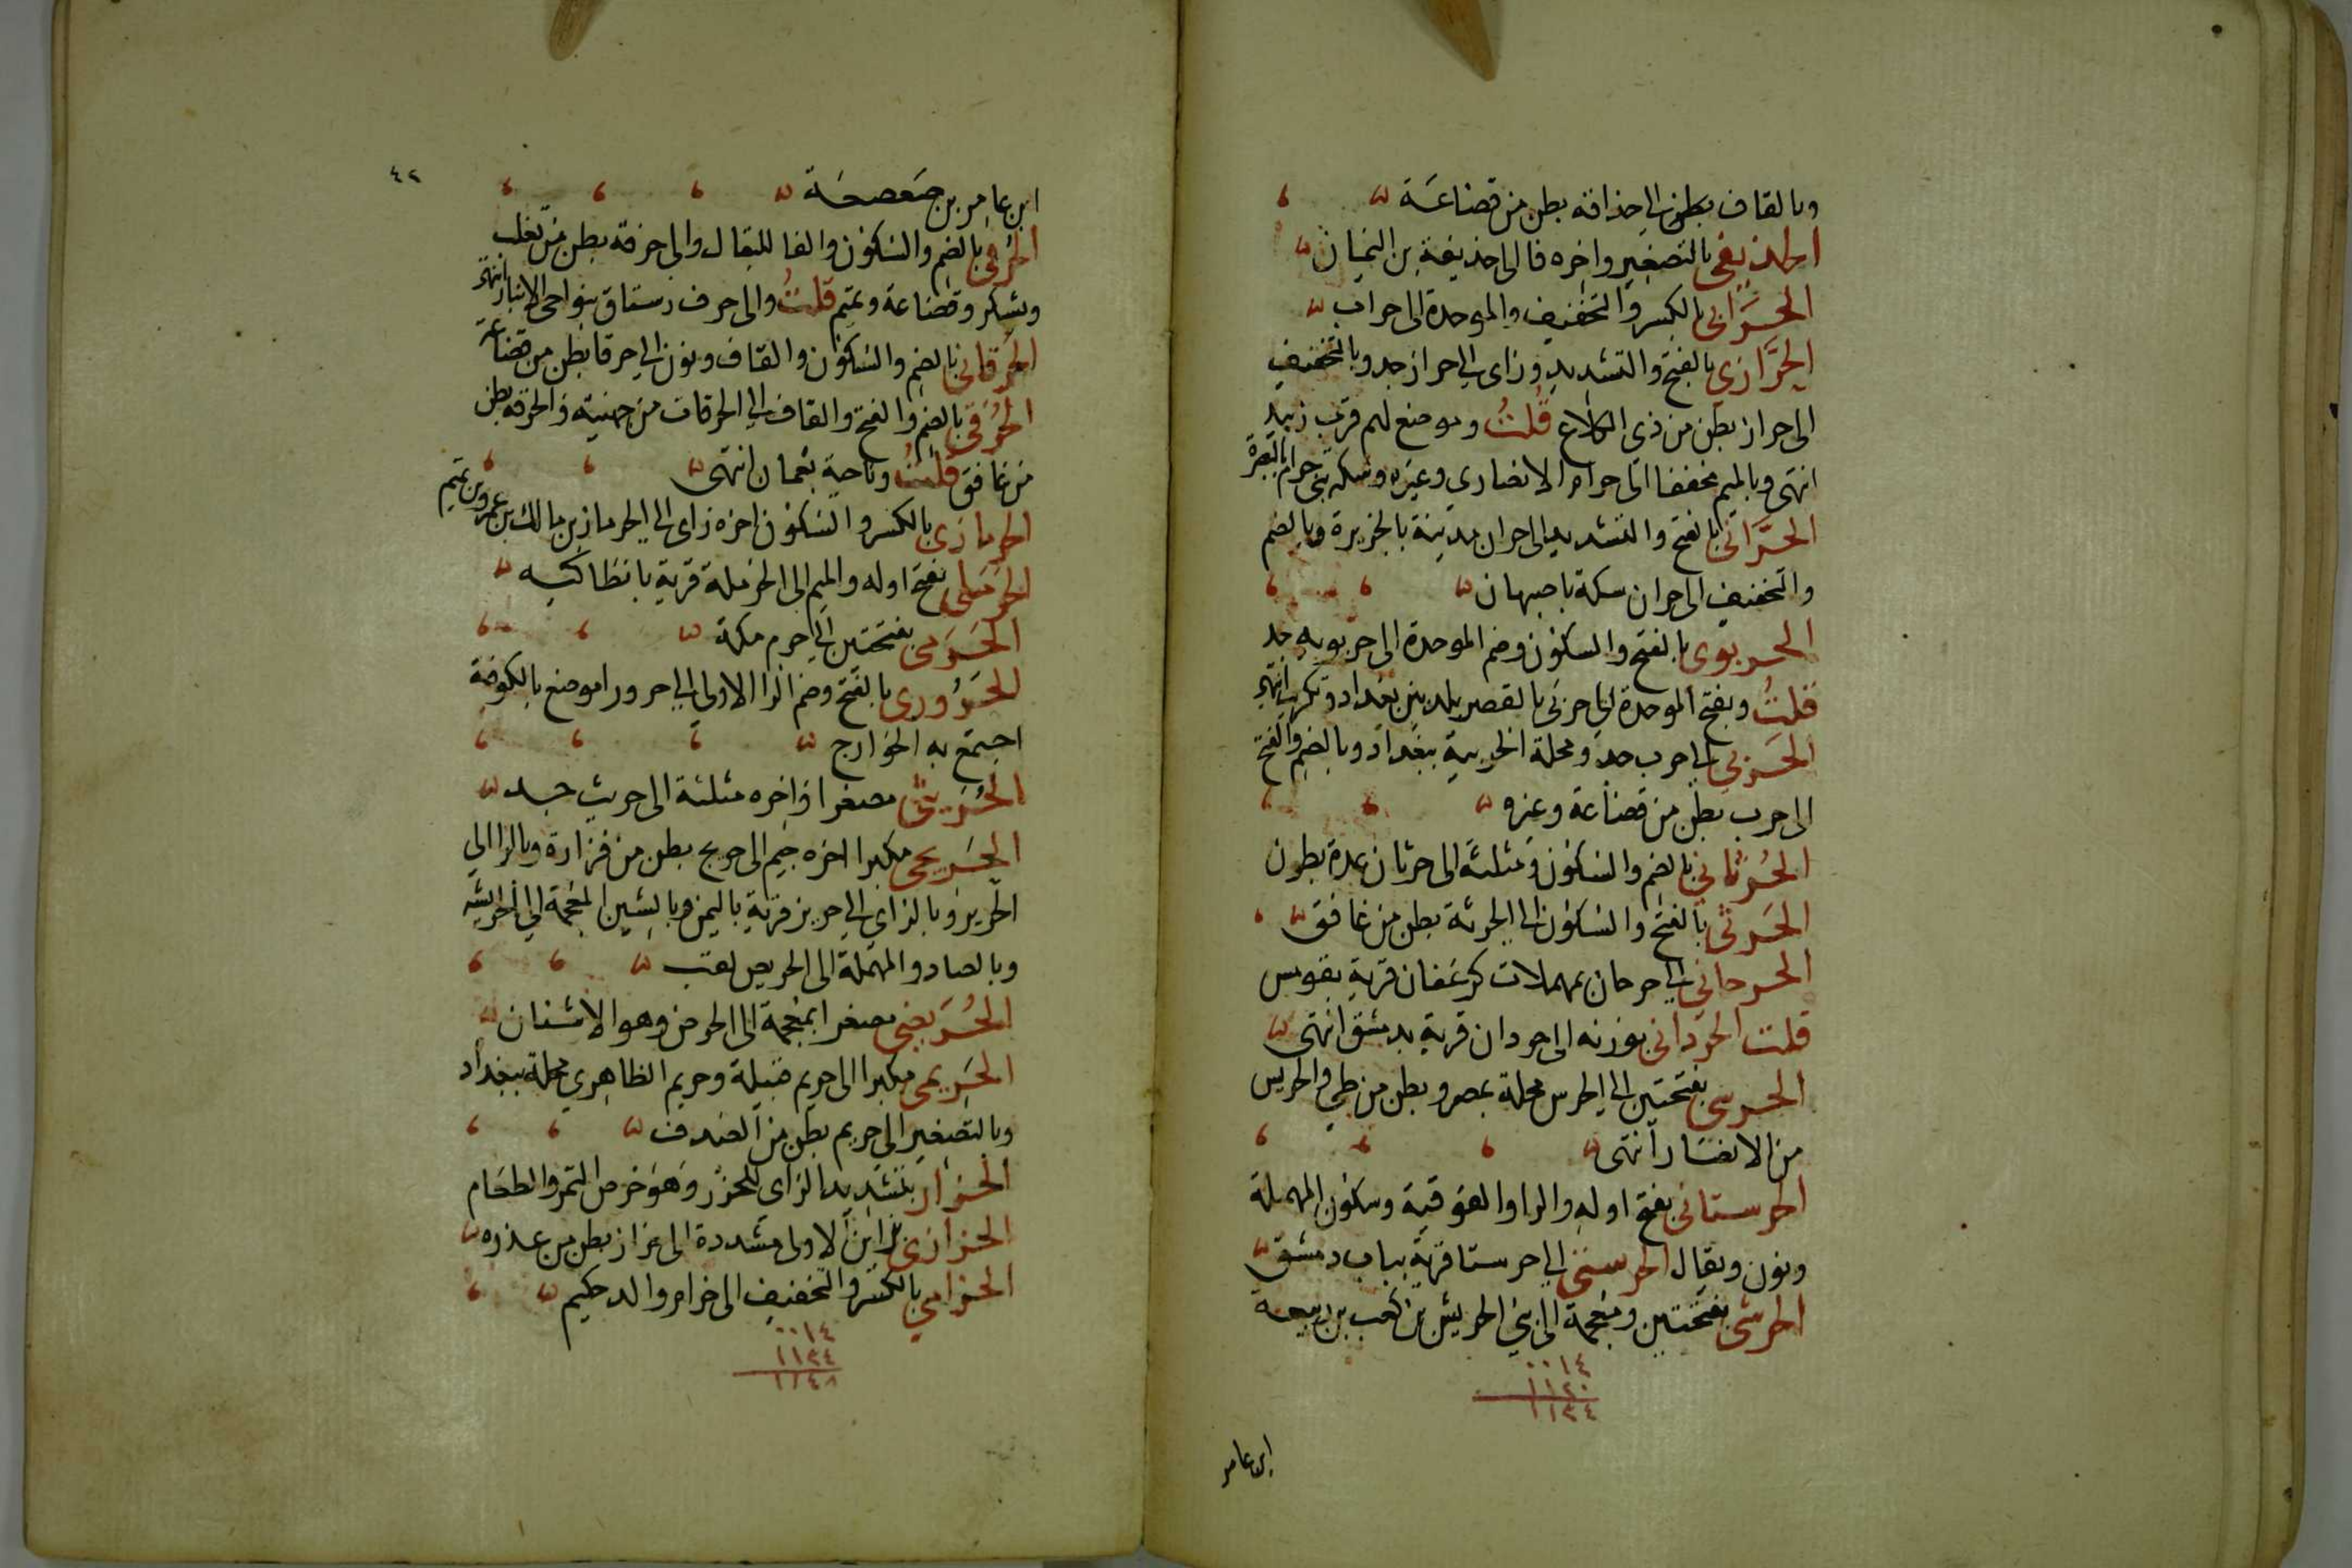 وبالقاف بطن الى حذاقة بطن من قضاعة
الحذيفى بالتصغير واخره فا الى حذيفة بن اليمان
الحرابى بالكسر والتخفيف والموحدة الى حراب
الحرازي بالفتح والتشديد وزاى الى حراز جد وبالتخفيف
الى حراز بطن من ذي الكلاع قلت وموضع لهم قرب زبيد
انتهى وبالميم مخففا الى حرام الانصاري وغيره وسكة بنى حرام بالبصرة
الحرانى بالفتح والتشديد الى حران مدينة بالجزيرة وبالضم
والتخفيف الى حران سكة باصبهان
الحربوى بالفتح والسكون وضم الموحدة الى حربويه جد
قلت وبفتح الموحدة الى حربى بالقصر بلد بين بغداد وتكريت انتهى
الحربي الى حرب جد ومحلة الحربية ببغداد وبالضم والفتح
الى حرب بطن من قضاعة وغيره
الحرثاني بالضم والسكون ومثلثة الى حرثان عدة بطون
الحرثى بالفتح والسكون الى الحرثة بطن من غافق
الحرحاني الى حرحان بمهملات كزعفان قرية بقومس
قلت الحردانى بوزنه الى حردان قرية بدمشق انتهى
الحرسى بفتحتين الى الحرس محلة بمصر وبطن من طي والحريس
من الانصار انتهى
الحرستانى بفتح اوله والراء والفوقية وسكون المهملة
ونون ويقال الحرستى الى حرستا قرية بباب دمشق
الحرشى بفتحتين ومعجمة الى بنى الحريش بن كعب بن ربيعة
٠٠١٤
١١٢٠
١١٣٤
ابن عامر
٤٢
ابن عامر بن صعصعة
الحرفى بالضم والسكون والفا للبقال والى حرفة بطن من تغلب
ويشكر وقضاعة وتميم قلت والى حرف رستاق بنواحى الانبار انتهى
الحرقانى بالضم والسكون والقاف ونون الى حرقا بطن من قضاعة
الحرقى بالضم والفتح والقاف الى الحرقات من جهينة والحرقة بطن
من غافق قلت وناحية بعمان انتهى
الحرمازى بالكسر والسكون اخره زاى الى الحرماز بن مالك بن عمرو بن تميم
الحرملى بفتح اوله والميم الى الحرملة قرية بانطاكيه
الحرمى بفتحتين الى حرم مكة
الحروري بالفتح وضم الرا الاولى الى حرورا موضع بالكوفة
اجتمع به الخوارج
الحريثى مصغرا واخره مثلثة الى حريث جد
الحريجى مكبرا اخره جيم الى حريج بطن من فزارة وبالرا الى
الحرير وبالزاي الى حريز قرية باليمن وبالشين المعجمة الى الحريش
وبالصاد والمهملة الى الحريص لقب
الحريضى مصغرا بمعجمة الى الحرض وهو الاشنان
الحريمى مكبرا الى حريم قبيلة وحريم الظاهري محلة ببغداد
وبالتصغير الى حريم بطن من الصدف
الحزار بتشديد الزاي للحزر وهو خرص التمر والطعام
الحزازى بزاين الاولى مشددة الى حزاز بطن من عذره
الحزامي بالكسر والتخفيف الى حزام والد حكيم
٠٠١٤
١١٣٤
١١٤٨